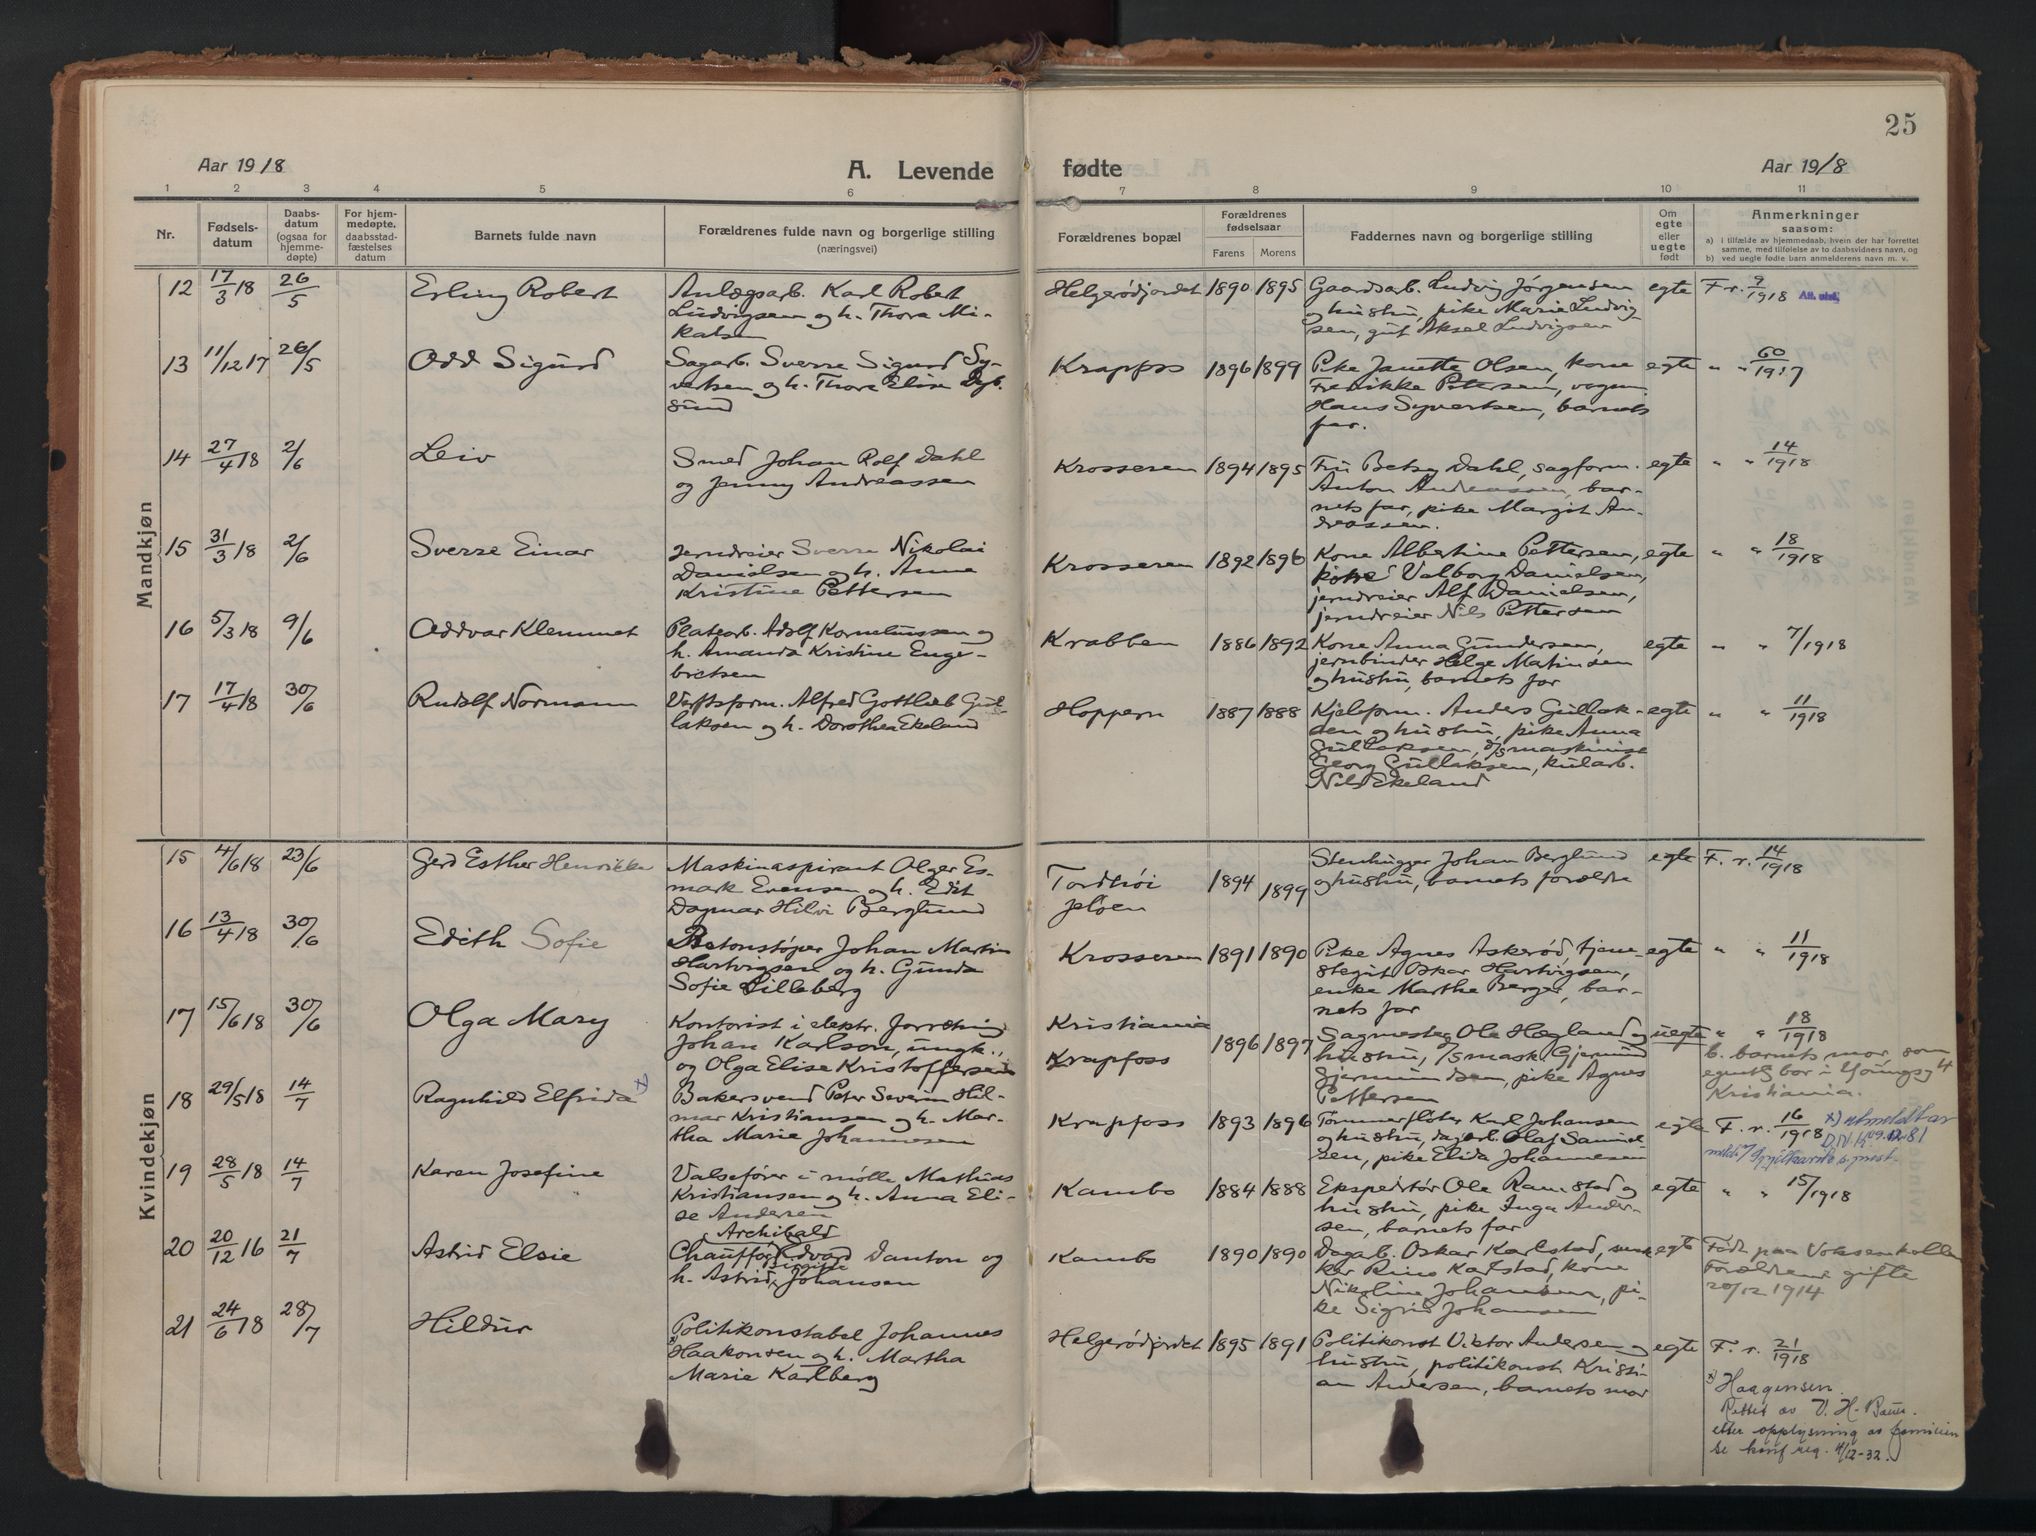 25
Aar 1918
A. Levende
fødte
Aar 1918
1 2 3 4 5 6 7 8 9 10 11
Nr.
Fødsels-
datum
Daabs-
datum
(ogsaa for
hjemme-
døpte)
For hjem-
medøpte,
daabsstad-
fæstelses
datum
Barnets fulde navn
Forældrenes fulde navn og borgerlige stilling
(næringsvei)
Forældrenes bopæl
Forældrenes
fødselsaar
Farens
Morens
Faddernes navn og borgerlige stilling
Om
egte
eller
uegte
født
Anmerkninger
saasom:
a) I tilfælde av hjemmedaab, hvem der har forrettet
samme, med tilføielse av to daabsvidners navn, og
b) ved uegte fødte barn anmelderens navn m. v.
Mandkjøn
12 17/3 18 26/5 Erling Robert
Anlægsarb. Karl Robert
Ludvigsen og h. Thora Mi-
kalsen
Helgerødjordet 1890 1895
Gaardsarb. Ludvig Jørgensen
og hustru, pike Marie Ludvig-
sen, gut Aksel Ludvigsen
egte F. r. 9/1918
13 11/12 17 26/5 Odd Sigurd
Sagarb. Sverre Sigurd Sy-
vertsen og h. Thora Elise Dyb-
sund
Krapfos 1896 1899
Pike Janette Olsen, kone
Fredrikke Petersen, vognm.
Hans Syvertsen, barnets
far.
egte " " 60/1917
14 27/4 18 2/6 Leiv
Smed Johan Rolf Dahl
og Jenny Andreassen
Krosseren 1894 1895
Fru Betsy Dahl, sagform.
Anton Andreassen, bar-
nets far, pike Margit An-
dreassen.
egte " " 14/1918
15 31/3 18 2/6 Sverre Einar
Jerndreier Sverre Nikolai
Danielsen og h. Anna
Kristine Pettersen
Krosseren 1892 1896
Kone Albertine Pettersen,
Valborg Danielsen,
jerndreier Alf Danielsen,
jerndreier Nils Pettersen
egte " " 18/1918
16 5/3 18 9/6 Oddvar Klemmet
Platearb. Adolf Korneliussen og
h. Amanda Kristine Enge-
bretsen
Krabben 1886 1892
Kone Anna Gundersen,
jernbinder Helge Matinsen
og hustru, barnets far
egte " " 7/1918
17 17/4 18 30/6 Rudolf Normann
Verftsform. Alfred Gottlieb Gul-
laksen og h. Dorothea Ekeland
Hoppern 1887 1888
Kjelform. Anders Gullak-
sen og hustru, pike Anna
Gullaksen, d/s maskinist
Georg Gullaksen, kularb.
Nils Ekeland
egte " " 11/1918
Kvindekjøn
15 4/6 18 23/6 Gerd Esther Henrikke
Maskinaspirant Olger Es-
mark Evensen og h. Edit
Dagmar Hilvi Berglund
Tordhøi
Jeløen 1894 1899
Stenhugger Johan Berglund
og hustru, barnets forældre
egte F. r. 14/1918
16 13/4 18 30/6 Edith Sofie
Betonstøper Johan Martin
Hartvigsen og h. Gunda
Sofie Lilleberg
Krosseren 1891 1890
Pike Agnes Askerød, tjene-
stegut Oskar Hartvigsen,
enke Marthe Berger, bar-
nets far
egte " " 11/1918
17 15/6 18 30/6 Olga Mary
Kontorist i elektr. forretning
Johan Karlson, ungk.,
og Olga Elise Kristoffersen
Kristiania
Krapfoss 1896 1897
Sagmester Ole Hægland og
hustru, d/s mask. Gjermund
Gjermundsen, pike Agnes
Pettersen
uegte " " 18/1918
b. barnets mor, som
egentlig bor i Youngsg 4
Kristiania.
18 29/5 18 14/7 Ragnhild Elfrida x)
Bakersvend Peter Severin Hil-
mar Kristiansen og h. Mar-
tha Marie Johannesen
Krapfoss 1893 1896
Tømmerfløter Karl Johansen
og hustru, dagarb. Olaf Samuel-
sen, pike Elida Johannesen
egte F. r. 16/1918
x) utmeldt av
19 28/5 18 14/7 Karen Josefine
Valsefører i mølle Mathias
Kristiansen og h. Anna Eli-
se Andersen
Kambo 1884 1888
Ekspeditør Ole Ramstad og
hustru, pike Inga Ander-
sen, barnets far
egte " " 15/1918
20 20/12 16 21/7 Astrid Elsie
Archibald
Chauffør Edvard Danton og
Birgitte
h. Astrid Johansen
Kambo 1890 1890
Dagarb. Oskar Karlstad,
Karlstad, kone
Nikoline Johansen, pi-
ke Sigrid Johansen
egte
Født paa Voksenkollen
Forældrene gifte
20/12 1914
21 24/6 18 28/7 Hildur
Politikonstabel Johannes
x) Haakonsen og h. Martha
Marie Karlberg
Helgerødjordet 1895 1891
Politikonst Viktor Andersen og
hustru, politikonst Kristi-
an Andersen, barnets mor
egte F. r. 21/1918
x) Haagensen.
Rettet av V. H. Baus.
etter opplysning av familien
Se konf reg. 4/12-32.